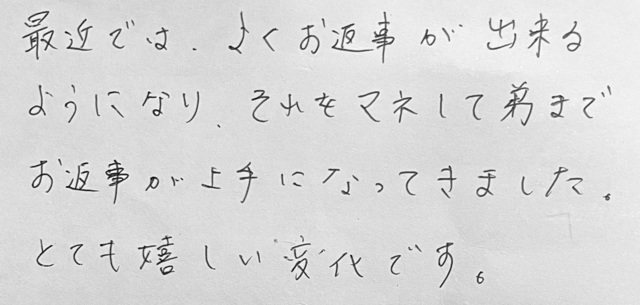 最近では、よくお返事が出来る
ようになり、それをマネして弟まで
お返事が上手になってきました。
とても嬉しい変化です。